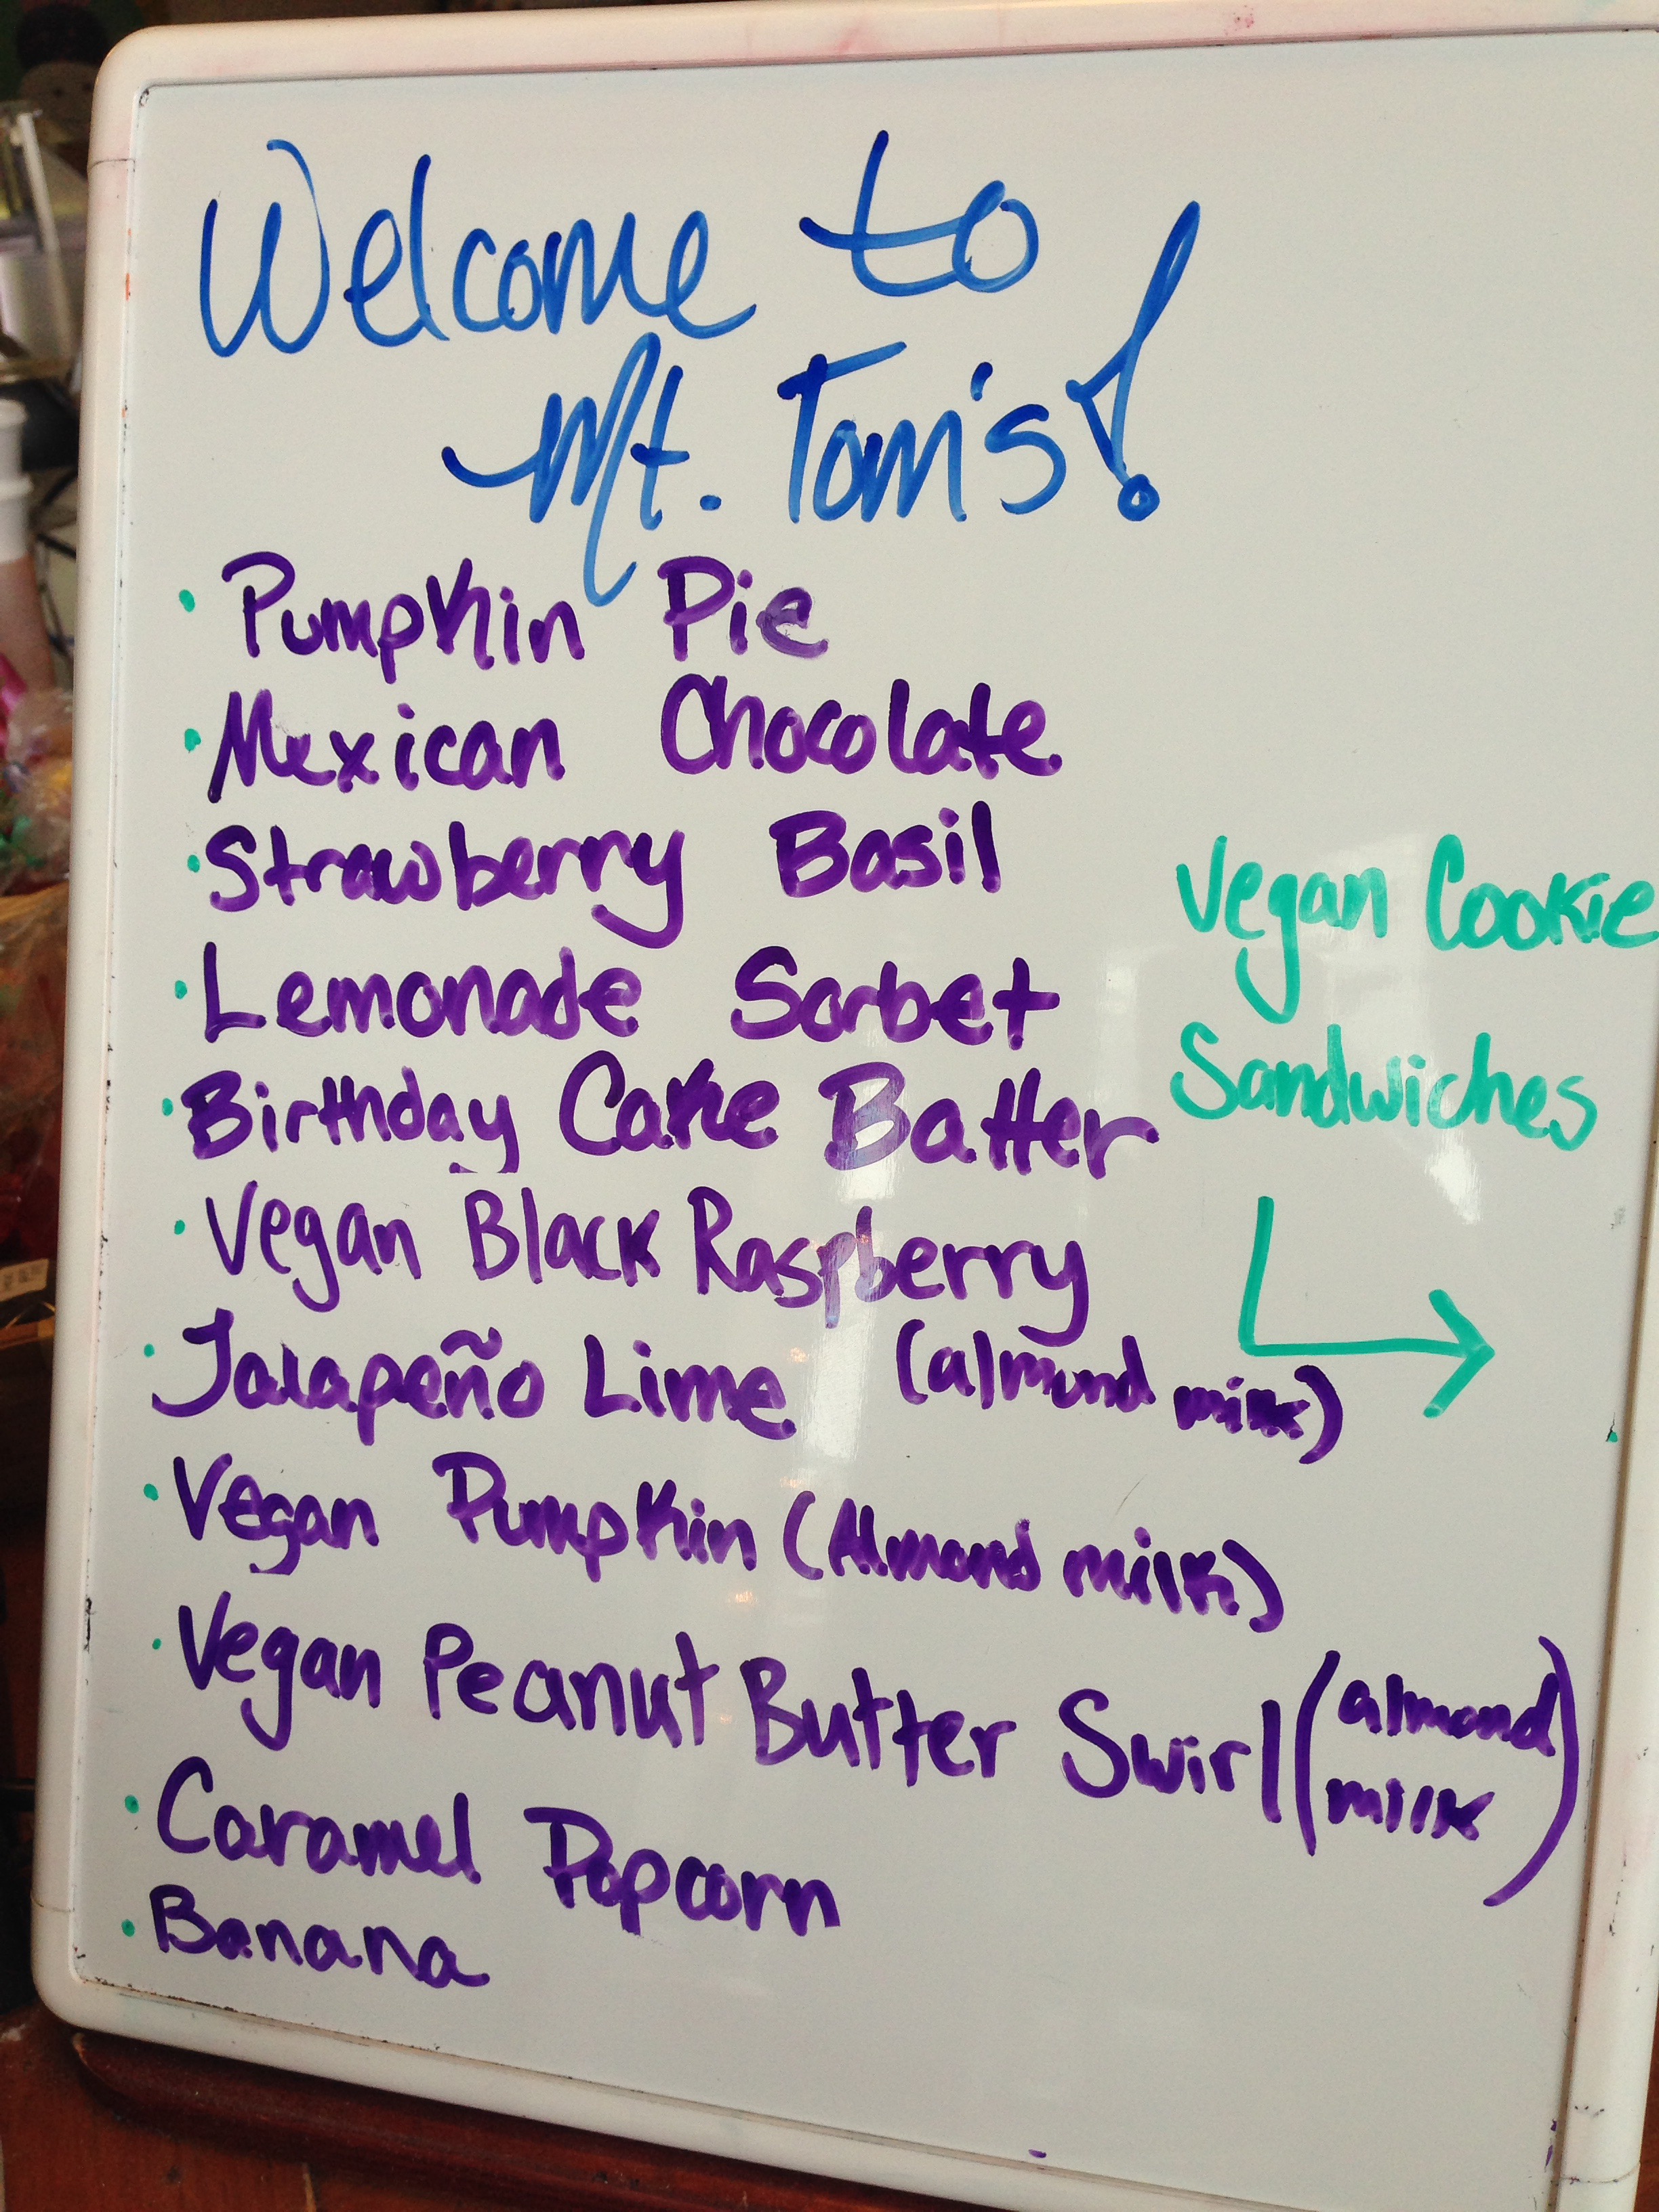 Welcome to
Mt. Tom's!
· Pumpkin Pie
· Mexican Chocolate
· Strawberry Basil
· Lemonade Sorbet
· Birthday Cake Batter
· Vegan Black Raspberry
(almond milk)
· Jalapeño Lime
· Vegan Pumpkin (Almond milk)
· Vegan Peanut Butter Swirl (almond milk)
· Caramel Popcorn
· Banana
Vegan Cookie
Sandwiches